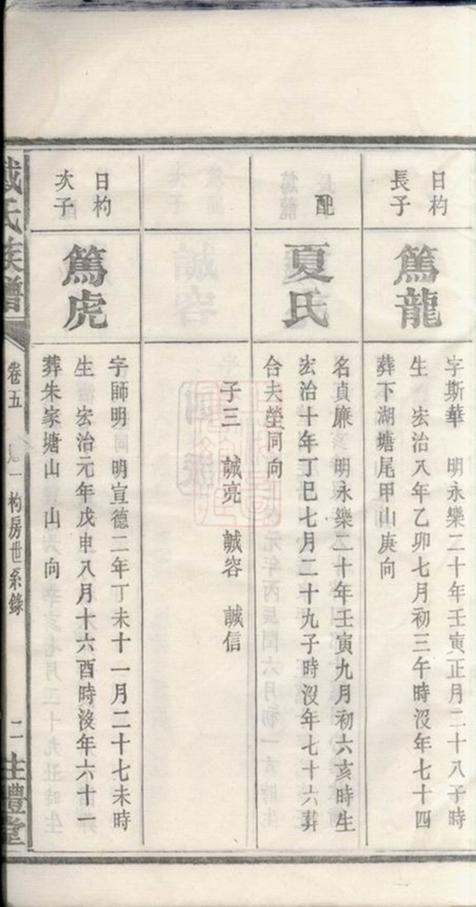 日杓
長子
篤龍
字斯華 明永樂二十年壬寅正月二十八子時
生 宏治八年乙卯七月初三午時沒年七十四
葬下湖塘尾甲山庚向
配
夏氏
名貞廉 明永樂二十年壬寅九月初六亥時生
宏治十年丁巳七月二十九子時沒年七十六葬
合夫塋同向
子三 誠亮 誠容 誠信
日杓
次子
篤虎
字師明 明宣德二年丁未十一月二十七未時
生 宏治元年戊申八月十六酉時沒年六十一
葬朱家塘山 山 向
戴氏族譜
卷五
杓房世系錄
二
注禮堂